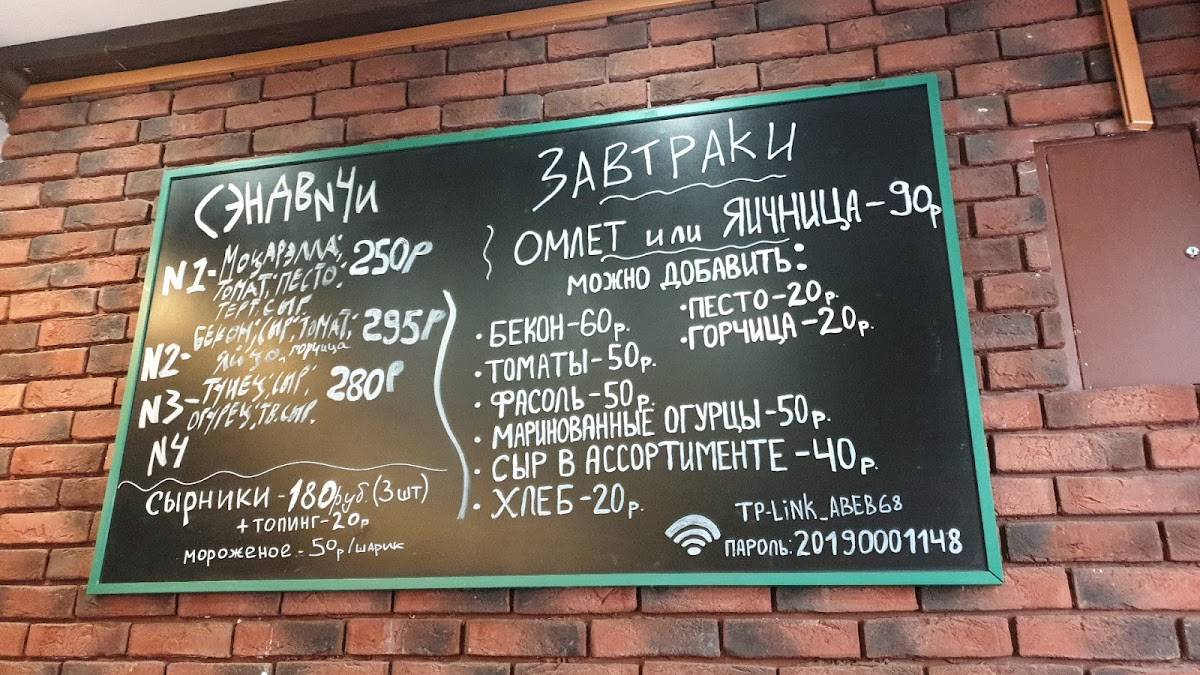 СЭНДВИЧИ
N1- МОЦАРЭЛЛА, 250Р
ТОМАТ, ПЕСТО,
ТЕРТ. СЫР.
N2- БЕКОН, СЫР, ТОМАТ, 295Р
ЯЙЦО, горчица
N3- ТУНЕЦ, СЫР, 280Р
ОГУРЕЦ, ТВ. СЫР.
N4
СЫРНИКИ - 180руб. (3шт)
+ТОПИНГ-20р
МОРОЖЕНОЕ - 50р/ШАРИК
ЗАВТРАКИ
ОМЛЕТ или ЯИЧНИЦА-90р
МОЖНО ДОБАВИТЬ:
·БЕКОН-60р.
·ТОМАТЫ-50р.
·ФАСОЛЬ-50р.
·МАРИНОВАННЫЕ ОГУРЦЫ-50р.
·СЫР В АССОРТИМЕНТЕ-40р.
·ХЛЕБ-20р.
·ПЕСТО-20р.
·ГОРЧИЦА-20р.
TP-LiNK_ABEB68
ПАРОЛЬ: 20190001148